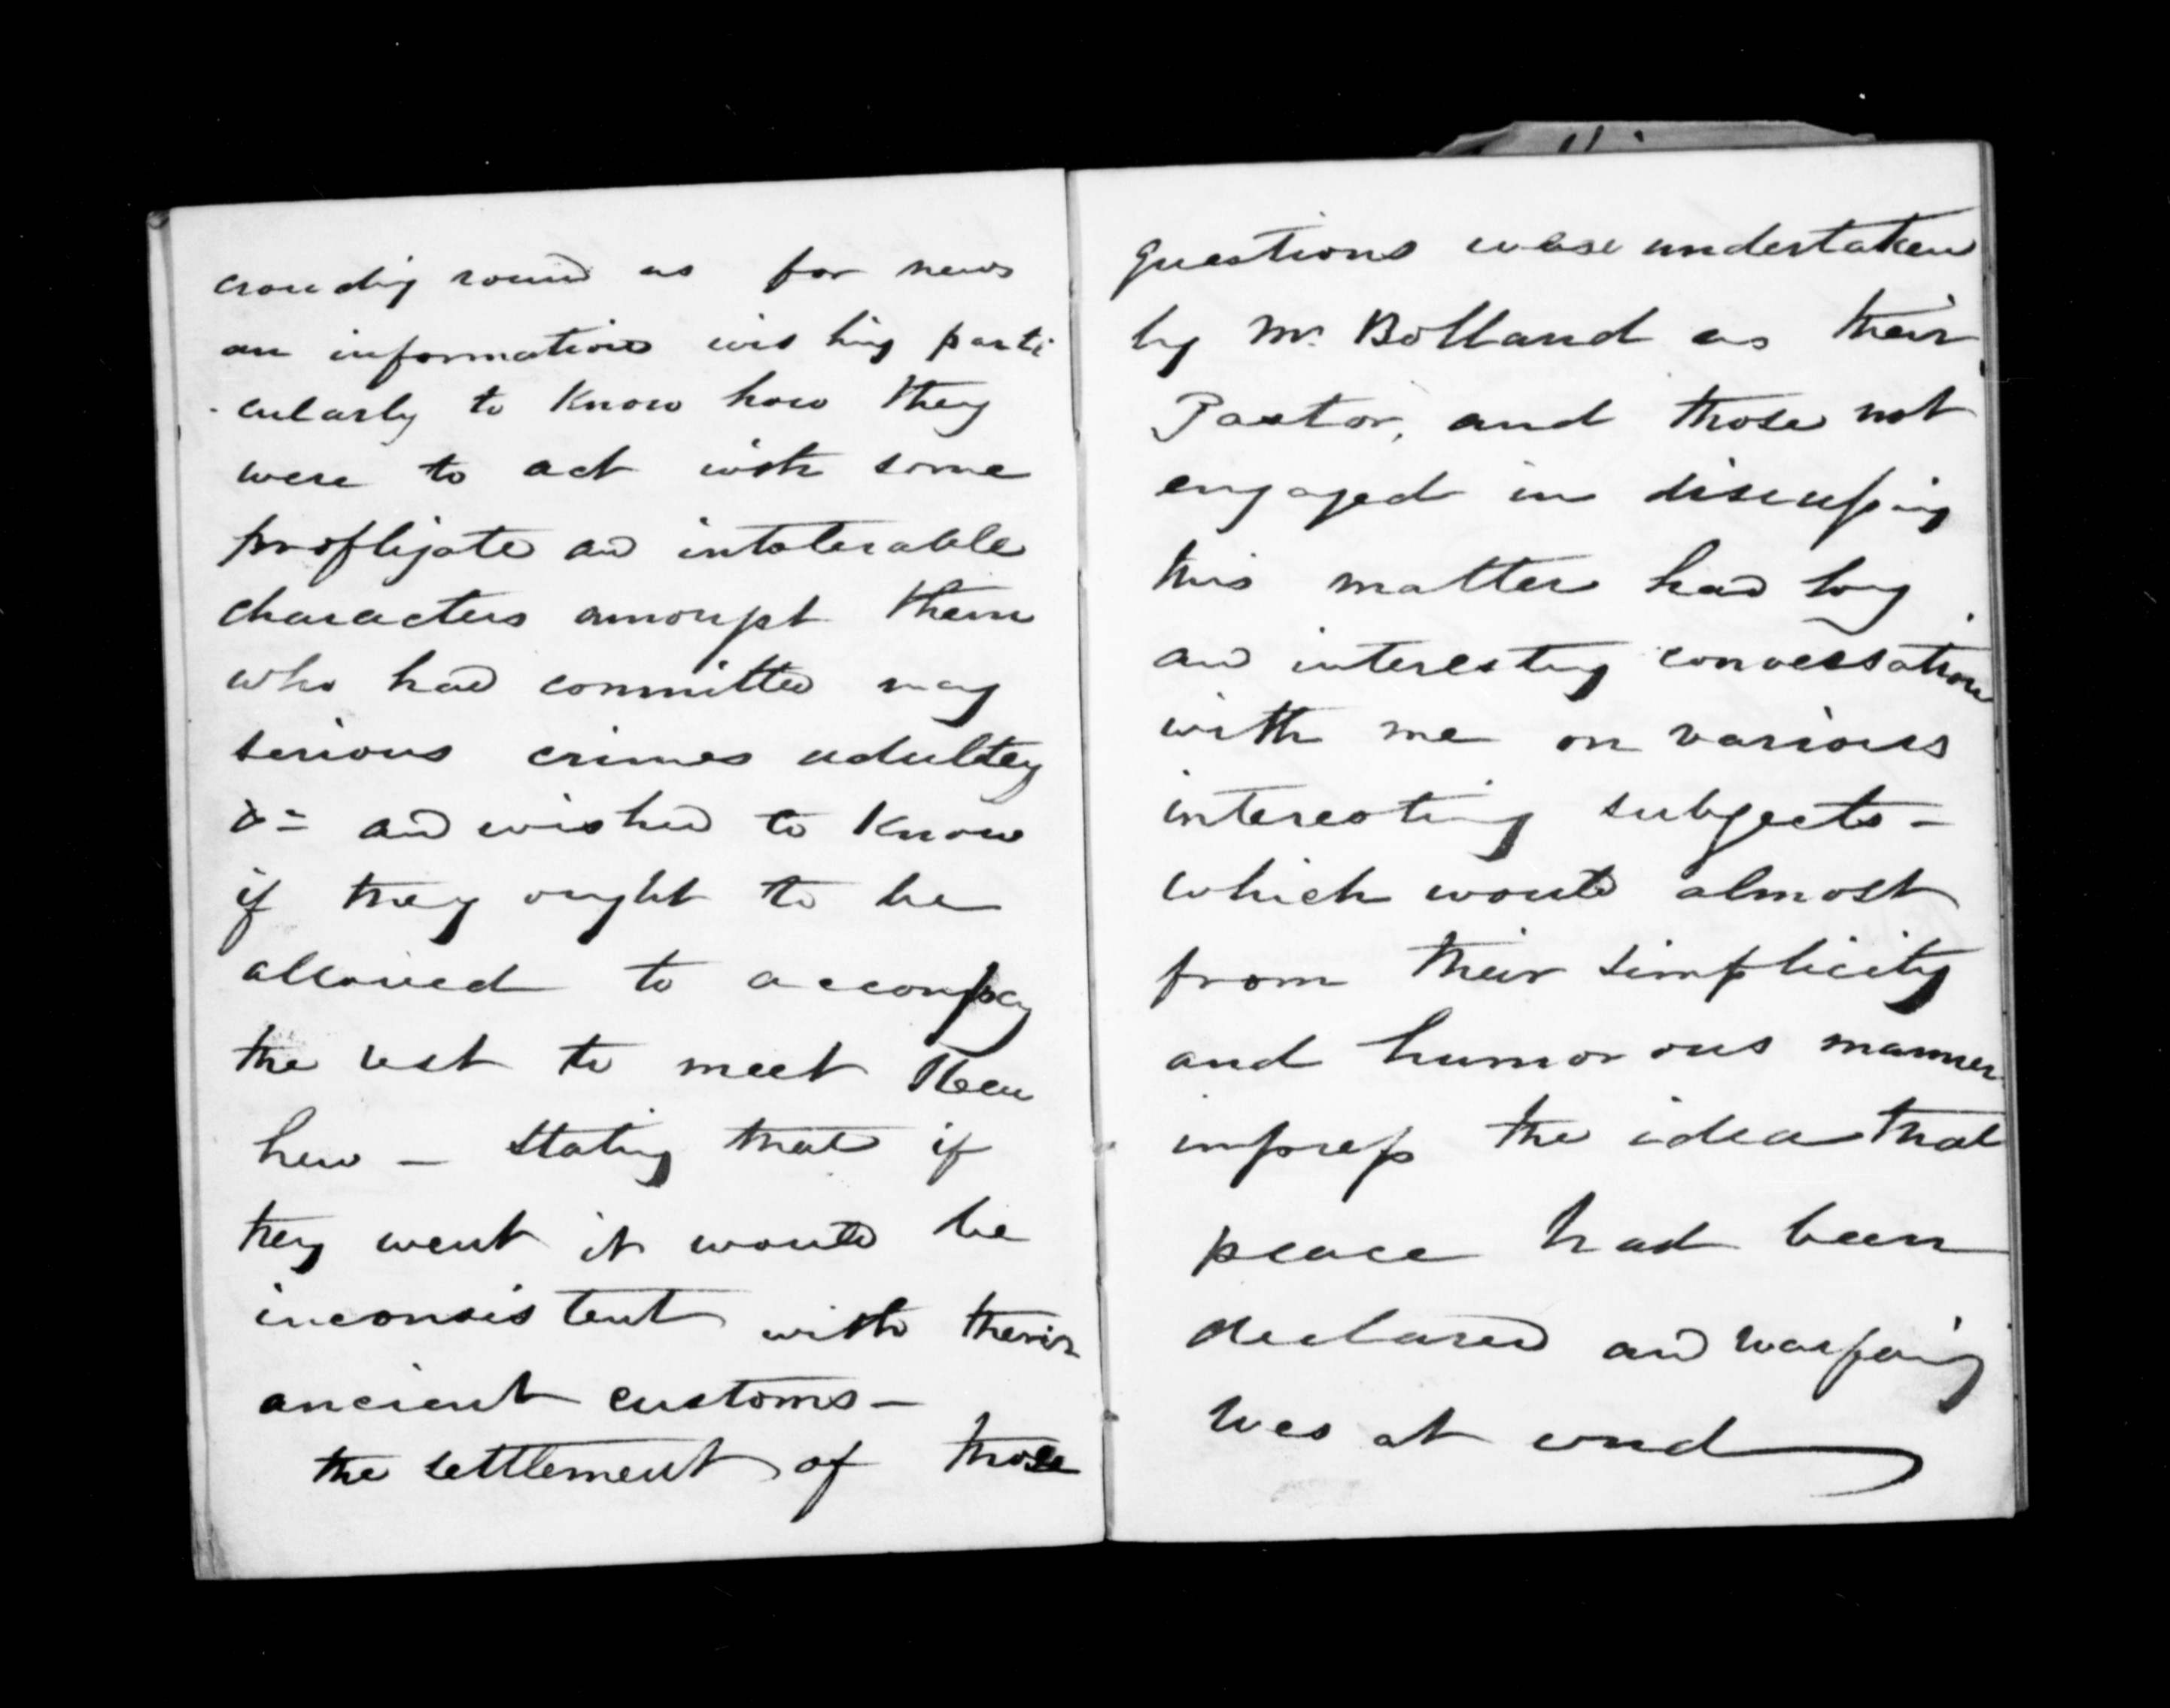 crouding round us for news
an information wishing parti
cularly to know how they
were to act with some
profligate and intolerable
characters amongst them
who had committed many
serious crimes adultery
&c and wished to know
if they ought to be
allowed to accompany
the rest to meet
heu — stating that if
they went it would be
inconsistent with their
ancient customs —
the settlement of those
questions was undertaken
by Mr Bolland as their
Pastor, and those not
engaged in discussing
this matter had long
and interesting conversation
with me on various
interesting subjects —
which would almost
from their simplicity
and humorous manner
impress the idea that
peace had been
declared and warfaring
was at end